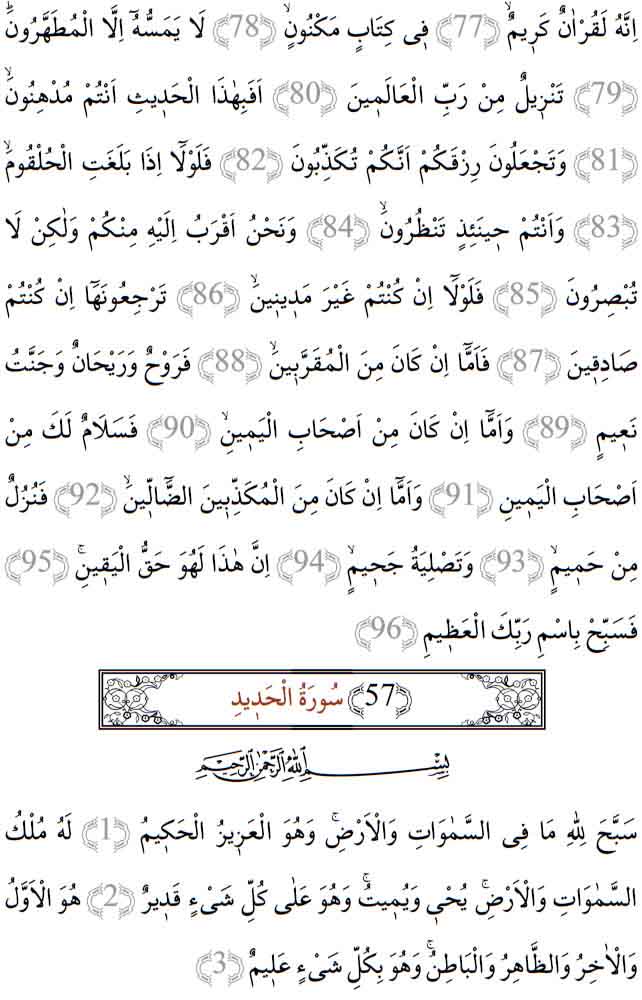 اِنَّهُ لَقُرْاٰنٌ كَر۪يمٌۙ ﴿77﴾ ف۪ى كِتَابٍ مَكْنُونٍۙ ﴿78﴾ لَا يَمَسُّهُٓ اِلَّا الْمُطَهَّرُونَۜ
﴿79﴾ تَنْز۪يلٌ مِنْ رَبِّ الْعَالَم۪ينَ ﴿80﴾ اَفَبِهٰذَا الْحَد۪يثِ اَنْتُمْ مُدْهِنُونَۙ
﴿81﴾ وَتَجْعَلُونَ رِزْقَكُمْ اَنَّكُمْ تُكَذِّبُونَ ﴿82﴾ فَلَوْلَٓا اِذَا بَلَغَتِ الْحُلْقُومَۙ
﴿83﴾ وَاَنْتُمْ ح۪ينَئِذٍ تَنْظُرُونَۙ ﴿84﴾ وَنَحْنُ اَقْرَبُ اِلَيْهِ مِنْكُمْ وَلٰكِنْ لَا
تُبْصِرُونَ ﴿85﴾ فَلَوْلَٓا اِنْ كُنْتُمْ غَيْرَ مَد۪ين۪ينَۙ ﴿86﴾ تَرْجِعُونَهَٓا اِنْ كُنْتُمْ
صَادِق۪ينَ ﴿87﴾ فَاَمَّٓا اِنْ كَانَ مِنَ الْمُقَرَّب۪ينَۙ ﴿88﴾ فَرَوْحٌ وَرَيْحَانٌ وَجَنَّتُ
نَع۪يمٍ ﴿89﴾ وَاَمَّٓا اِنْ كَانَ مِنْ اَصْحَابِ الْيَم۪ينِۙ ﴿90﴾ فَسَلَامٌ لَكَ مِنْ
اَصْحَابِ الْيَم۪ينِ ﴿91﴾ وَاَمَّٓا اِنْ كَانَ مِنَ الْمُكَذِّب۪ينَ الضَّٓالّ۪ينَۙ ﴿92﴾ فَنُزُلٌ
مِنْ حَم۪يمٍۙ ﴿93﴾ وَتَصْلِيَةُ جَح۪يمٍۙ ﴿94﴾ اِنَّ هٰذَا لَهُوَ حَقُّ الْيَق۪ينِۚ ﴿95﴾
فَسَبِّحْ بِاسْمِ رَبِّكَ الْعَظ۪يمِ ﴿96﴾
﴿57﴾ سُورَةُ الْحَد۪يدِ
بِسْمِ اللهِ الرَّحْمٰنِ الرَّحِيمِ
سَبَّحَ لِلّٰهِ مَا فِى السَّمٰوَاتِ وَالْاَرْضِۚ وَهُوَ الْعَز۪يزُ الْحَك۪يمُ ﴿1﴾ لَهُ مُلْكُ
السَّمٰوَاتِ وَالْاَرْضِۚ يُحْي۪ى وَيُم۪يتُۚ وَهُوَ عَلٰى كُلِّ شَىْءٍ قَد۪يرٌ ﴿2﴾ هُوَ الْاَوَّلُ
وَالْاٰخِرُ وَالظَّاهِرُ وَالْبَاطِنُۚ وَهُوَ بِكُلِّ شَىْءٍ عَل۪يمٌ ﴿3﴾